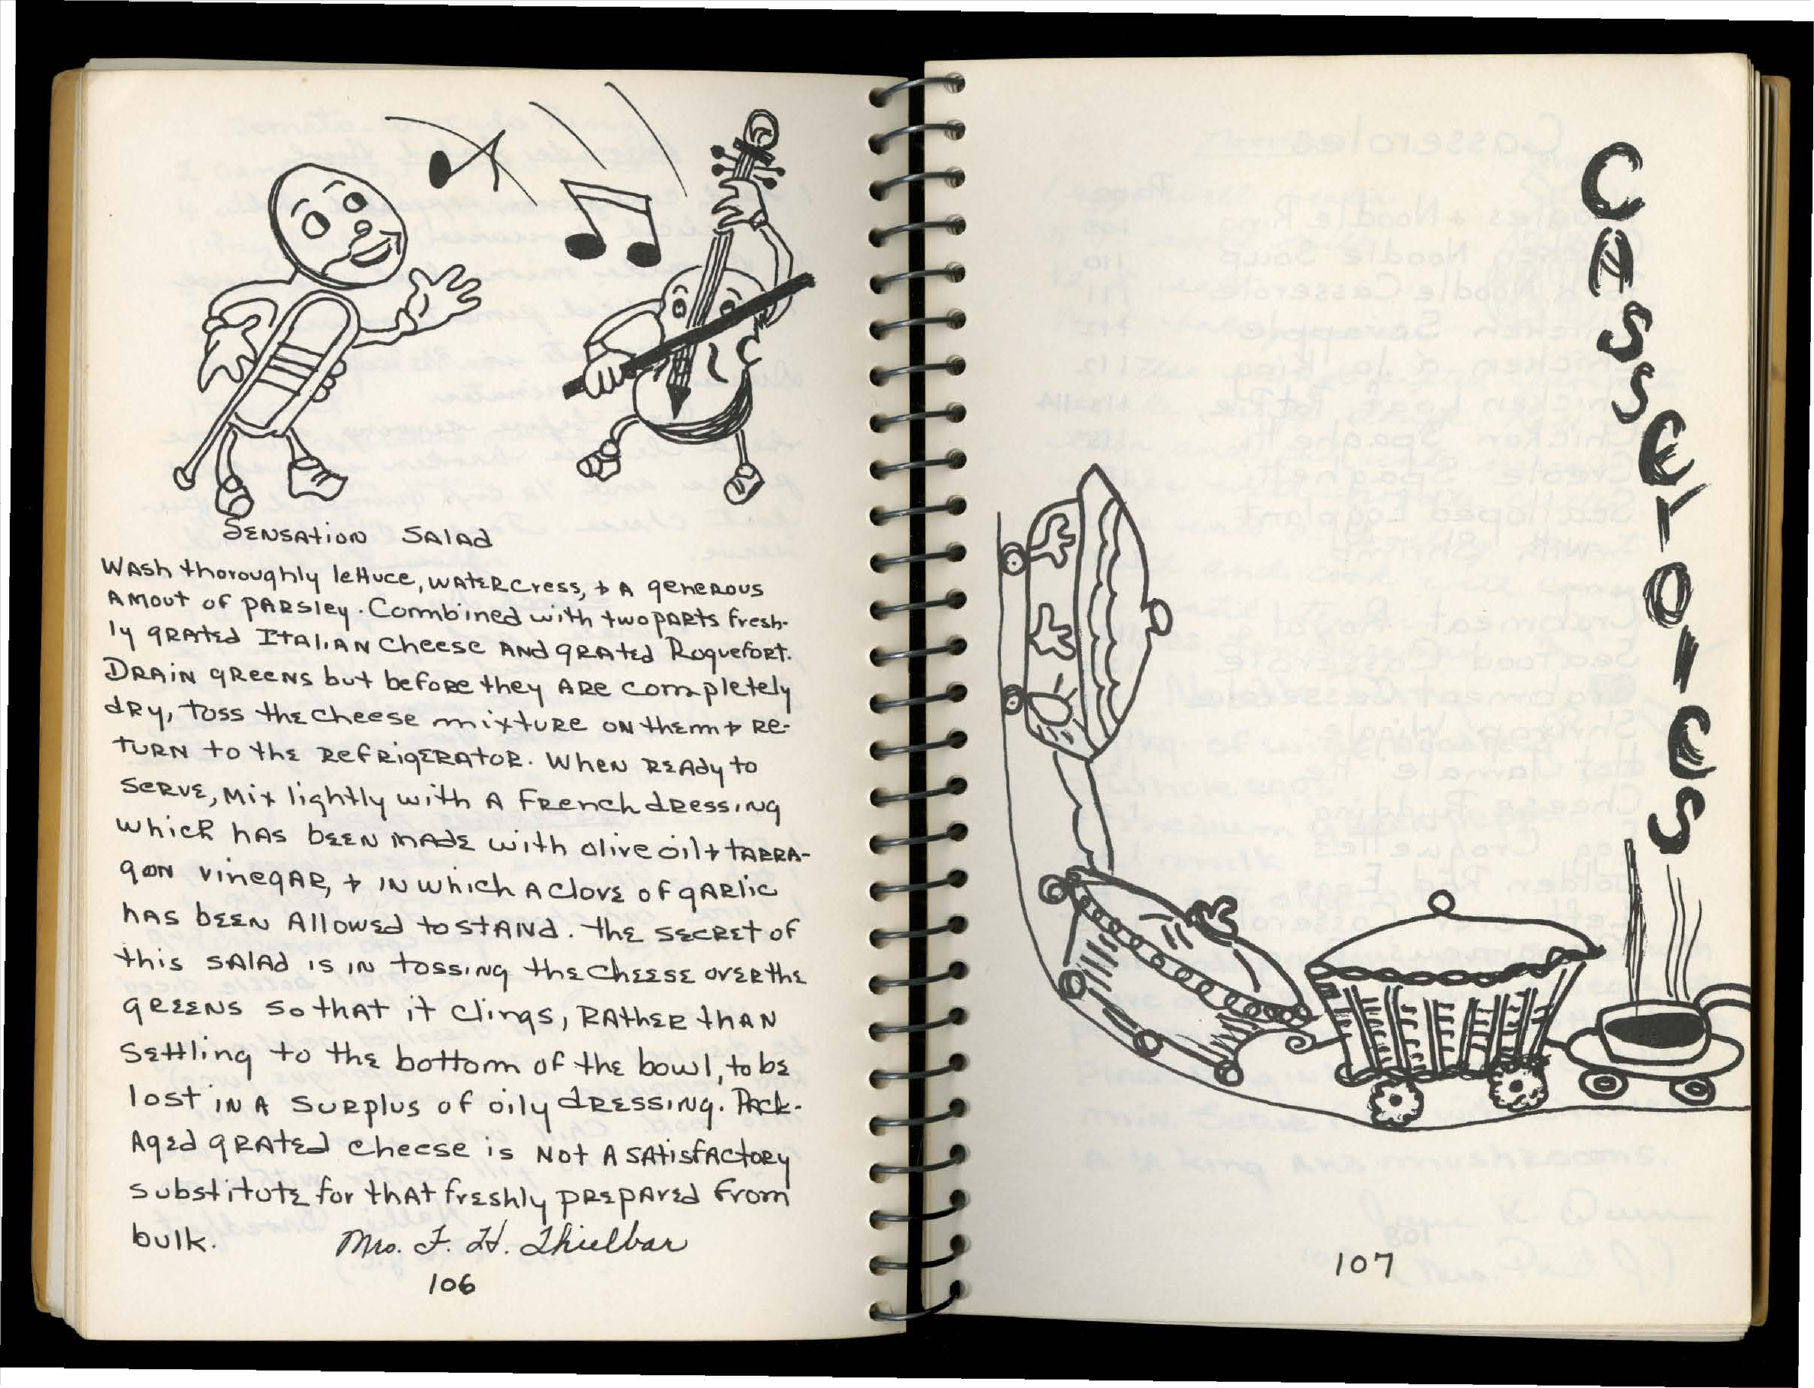 Sensation Salad
Wash thoroughly lettuce, watercress, + a generous
amout of parsley. Combined with two parts fresh-
ly grated Italian cheese and grated Roquefort.
Drain greens but before they are completely
dry, toss the cheese mixture on them + re-
turn to the refrigerator. When ready to
serve, mix lightly with a French dressing
which has been made with olive oil + tarra-
gon vinegar, + in which a clove of garlic
has been allowed to stand. The secret of
this salad is in tossing the cheese over the
greens so that it clings, rather than
settling to the bottom of the bowl, to be
lost in a surplus of oily dressing. Pack-
aged grated cheese is not a satisfactory
substitute for that freshly prepared from
bulk. Mrs. F. H. Thielbar
106
CASSEROLES
107